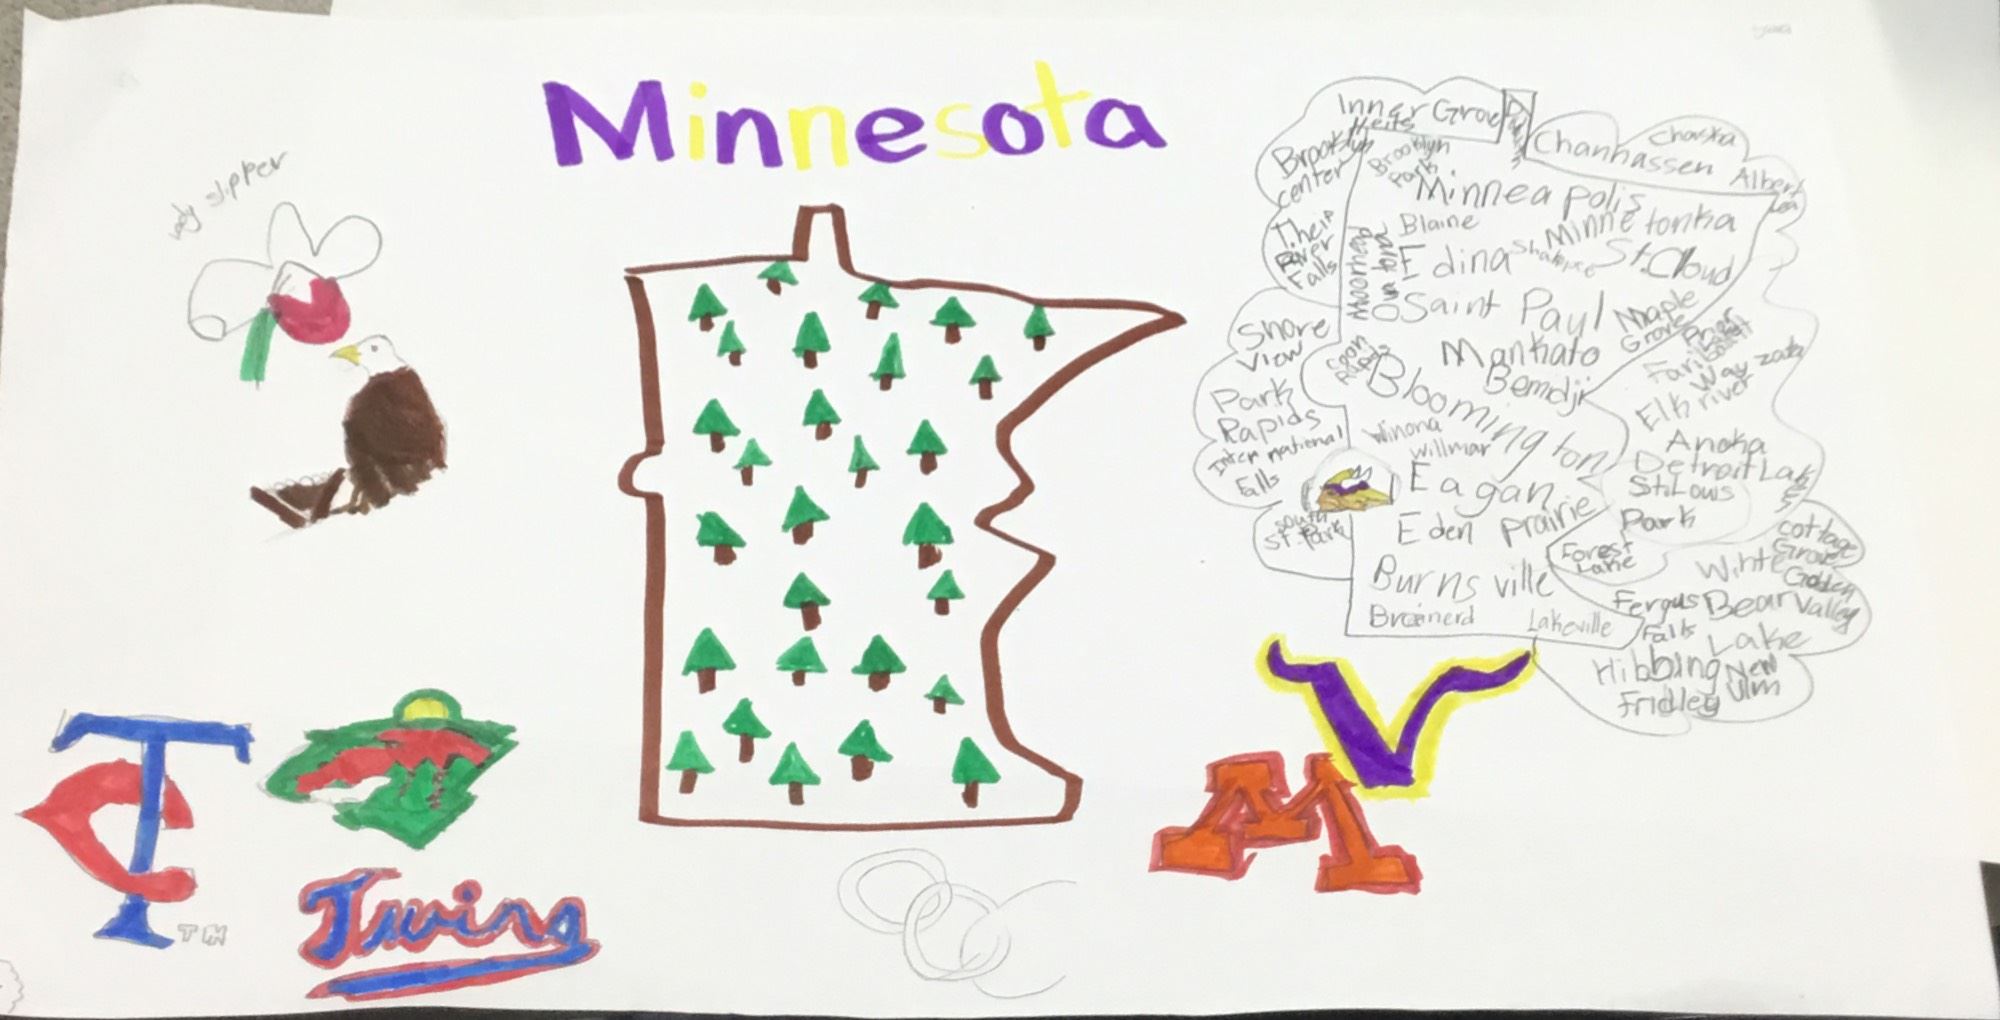 Minnesota
lady slipper
Inner Grove
Heits
Brooklyn
center
Brooklyn
Park
Chanhassen
Chaska
Albert
Lea
Minneapolis
Blaine
Minnetonka
Theif
River
Falls
Moorhead
Owatona
Edina
Shakopee
St. Cloud
Saint Paul
Maple
Grove
Shore
View
Coon
Rapids
Mankato
Bemdji
Bloomington
Faribault
Wayzata
Elk river
Park
Rapids
International
Falls
Winona
Willmar
Anoka
Detroit Lak
St. Louis
Park
Eagan
Eden prairie
South
St. Park
Forest
Lake
cottage
Grove
Golden
Valley
White
Bear
Lake
Burnsville
Fergus
Falls
Brainerd
Lakeville
Hibbing
New
Ulm
Fridley
TC
TM
Twins
M
V